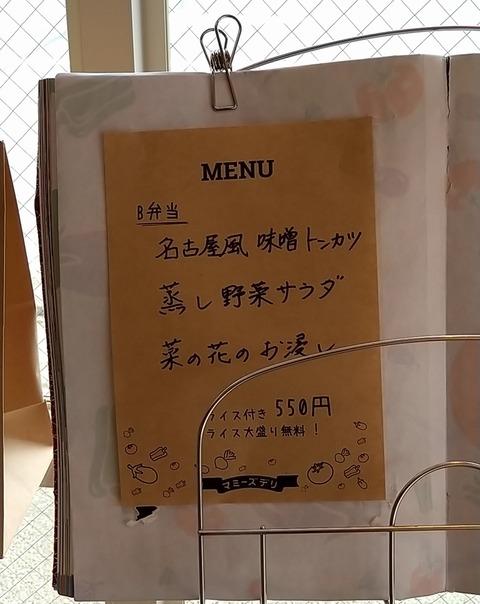 MENU
B弁当
名古屋風 味噌トンカツ
蒸し野菜サラダ
菜の花のお浸し
ライス付き 550円
ライス大盛り無料！
マミーズデリ